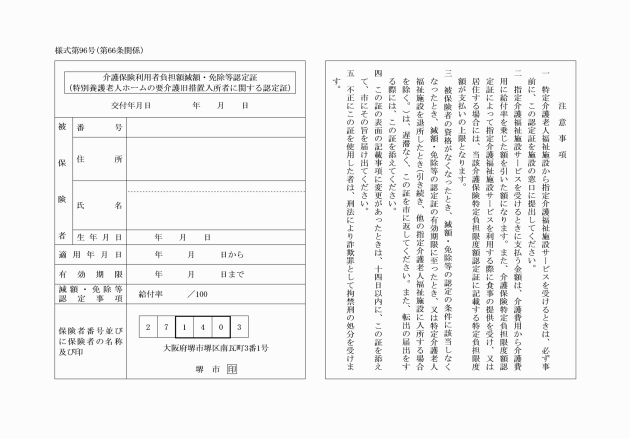 様式第96号(第66条関係)
介護保険利用者負担額減額・免除等認定証
(特別養護老人ホームの要介護旧措置入所者に関する認定証)
交付年月日 年 月 日
被保険者
番号
住所
氏名
生年月日 年 月 日
適用年月日 年 月 日から
有効期限 年 月 日まで
減額・免除等
認定事項
給付率 /100
保険者番号並び
に保険者の名称
及び印
2 7 1 4 0 3
大阪府堺市堺区南瓦町3番1号
堺市 印
注意事項
一 特定介護老人福祉施設から指定介護福祉施設サービスを受けるときは、必ず事
前に、この認定証を施設の窓口に提出してください。
二 指定介護福祉施設サービスを受けるときに支払う金額は、介護費用から介護費
用に給付率を乗じた額を引いた額になります。また、介護保険特定負担限度額認
定証によって指定介護福祉施設サービスを利用する際に食事の提供を受け、又は
居住する場合には、当該介護保険特定負担限度額認定証に記載する特定負担限度
額が支払いの上限となります。
三 被保険者の資格がなくなったとき、減額・免除等の認定の条件に該当しなく
なったとき、減額・免除等の認定証の有効期限に至ったとき、又は特定介護老人
福祉施設を退所したとき(引き続き、他の指定介護老人福祉施設に入所する場合
を除く。)は、遅滞なく、この証を市に返してください。また、転出の届出をす
る際には、この証を添えてください。
四 この証の表面の記載事項に変更があったときは、十四日以内に、この証を添え
て、市にその旨を届け出てください。
五 不正にこの証を使用した者は、刑法により詐欺罪として拘禁刑の処分を受けま
す。